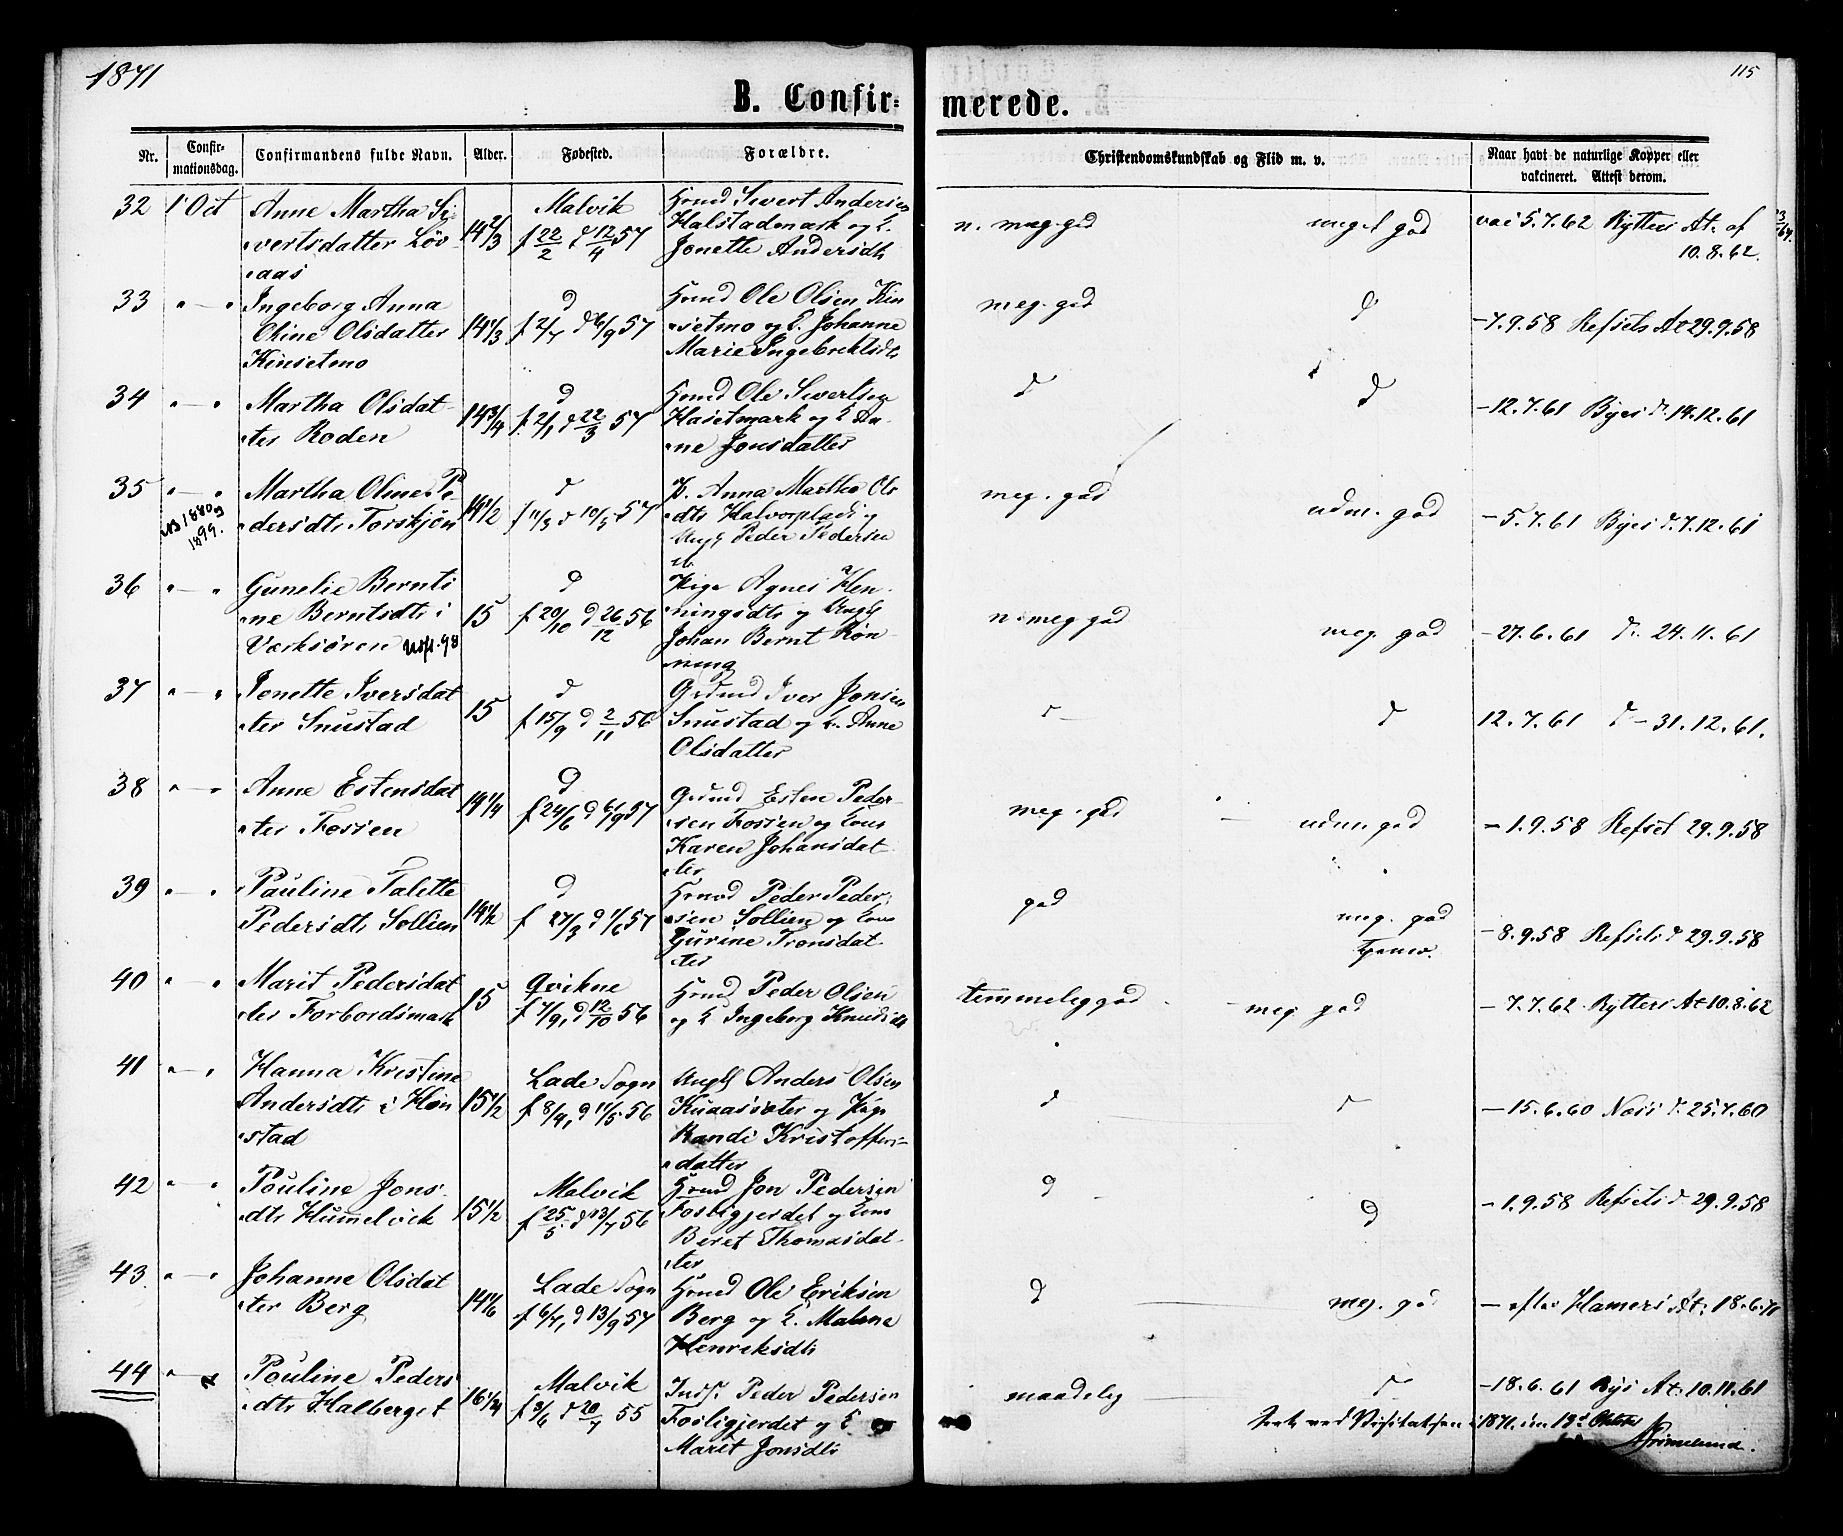 1871
115
B. Confir-
merede.
Nr.
Confir-
mationsdag.
Confirmandens fulde Navn.
Alder.
Fødested.
Forældre.
Christendomskundskab og Flid m. v.
Naar havt de naturlige Kopper eller
vakcineret. Attest derom.
32 1' Oct Anne Martha Si-
vertsdatter Løv-
aas
14 2/3
Malvik
f 22/2 d 12/4 57
Huusmd Sivert Andersen
Halstadmark og E.
Jonette Andersdtr
n. meg. gd
meget god
vac 5.7.62 Rytters At. af
10.8.62.
33 " — " Ingeborg Anna
Oline Olsdatter
Kinsetmo
14 1/3
d
f 2/7 d 6/9 57
Hmd Ole Olsen Kin
setmo og E. Johanne
Marie Ingebrektsdt
meg. gd
d
- 7.9.58 Refsets At 29.9.58
34 " — " Martha Olsdat-
ter Roden
14 3/4
d
f. 2/1 d 22/3 57
Hmd Ole Sivertsen
Hasetmark og E An-
ne Jonsdatter
d
d
- 12.7.61 Byes d. 14.12.61
35 " — "
1899.
Martha Oline Pe-
dersdtr Torskjøn
14 1/2
d
f 11/3 d 10/5 57
P. Anna Martha Ols
dtr Halvorplads og
Ungk Peder Pedersen
meg. god
udm. god
- 5.7.61 Byes d. 7.12.61
36 " — " Gunelie Bernti
ne Berntsdtr i
Værksøren
15
d
f 20/10 d 26/12 56
Pige Agnes Hen-
ningsdtr og Ungk
Johan Bernt Røn-
ning
n. meg god
meg. god
- 27.6.61 d. 24.11.61
37 " — " Jonette Iversdat
ter Snustad
15
d
f 15/9 d 2/11 56
Grdmd Iver Jonsen
Snustad og E. Anne
Olsdatter
d
d
12.7.61 d - 31.12.61.
38 " — " Anne Estensdat
ter Fosien
14 1/4
d
f 24/6 d 6/9 57
Grdmd Esten Peder-
sen Fosien og Kone
Karen Johansdat-
ter
meg. gd
udm. god
- 1.9.58 Refset 29.9.58
39 " — " Pauline Talette
Pedersdtr Sollien
14 1/2
d
f 27/3 d 1/6 57
Hmd Peder Peder-
sen Sollien og Kone
Gurine Tronsdat-
ter
god
meg. god
- 8.9.58 Refsets d 29.9.58
40 " — " Marit Pedersdat
ter Forbordsmark
15
Qvikne
f 7/9, d 12/10 56
Hmd Peder Olsen
og E Ingeborg Knudsdt
temmelig god
meg. god
- 7.7.62. Rytters At 10.8.62
41 " — " Hanna Kristine
Andersdtr i Høn
stad
15 1/2
Lade Sogn
f 8/4, d 11/5 56
Ungk Anders Olsen
og Pige
Randi Kristoffers-
datter
d
d
- 15.6.60 Næss d. 25.7.60
42 " — " Pouline Jons-
dtr Hummelvik
15 1/2
Malvik
f 25/5 d 13/7 56
Hmd Jon Pedersen
Fosligjerdet og Kone
Beret Thomasdat-
ter
d
d
- 1.9.58 Refsets d 29.9.58
43. " — " Johanne Olsdat
ter Berg
14 1/6
Lade Sogn
f 6/7, d 13/9 57
Hmd Ole Eriksen
Berg og E. Malene
Henriksdtr
d
meg. gd
- efter Hamers At. 18.6.71
44 " — " Pouline Peders
dtr Halberget
16 1/4
Malvik
f 3/6 d 20/7 55
Inds. Peder Pedersen
Fosligjerdet og E
Marit Jonsdtr
maadelig
d
- 18.6.61 Byes At. 10.11.61
Seet ved Visitatsen i 1871. den 12te October
Grimelund.